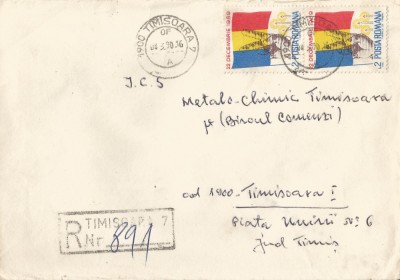 1900 TIMISOARA 7
OF
A
22 DECEMBRIE 1989
POSTA ROMANA
2
22 DECEMBRIE 1989
POSTA ROMANA
2
J.C.S
Metalo-Chimica Timisoara
pt (Biroul Comenzi)
cod 1900 - Timisoara I
Piata Unirii No 6
Jud Timiș
R TIMISOARA 7
Nr. 891